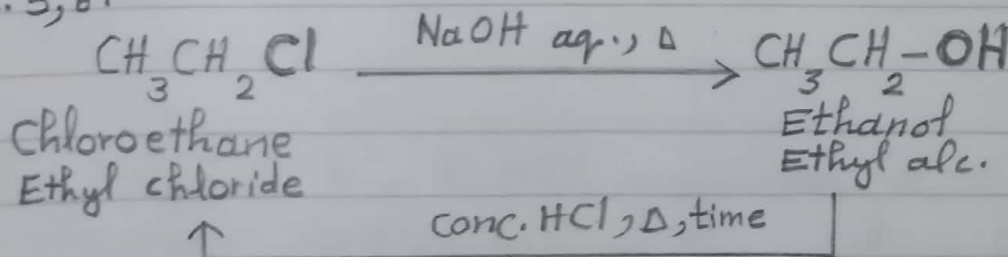 CH₃CH₂Cl NaOH aq., Δ → CH₃CH₂-OH
Chloroethane Ethanol
Ethyl chloride Ethyl alc.
↑ conc. HCl, Δ, time